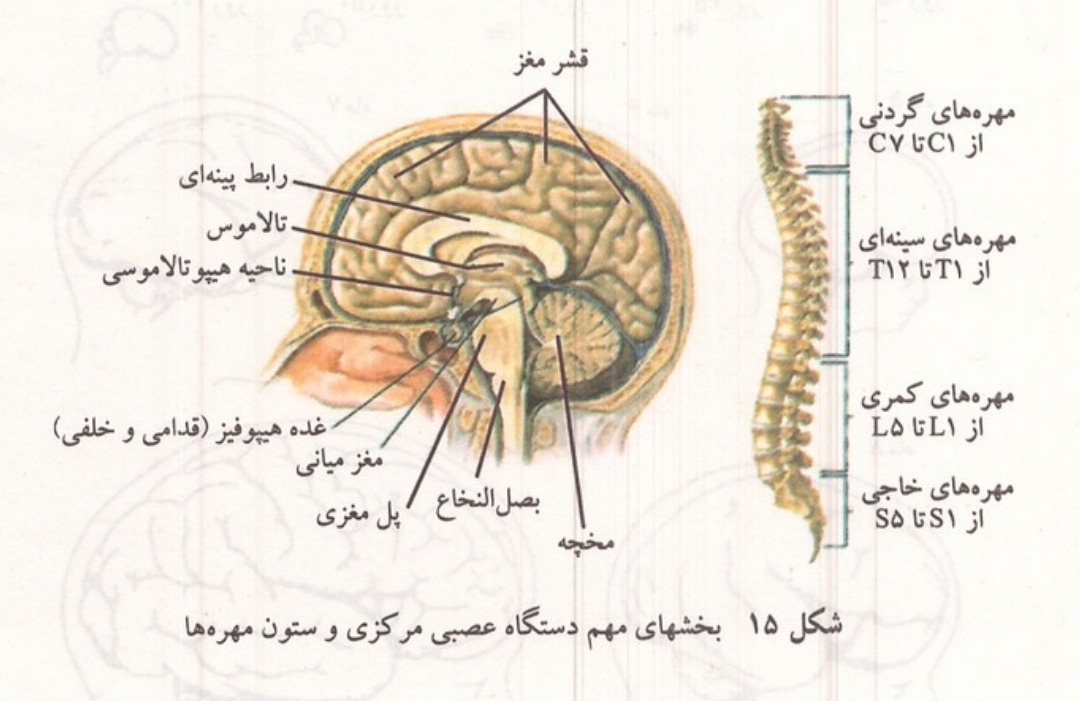 قشر مغز
رابط پینه‌ای
تالاموس
ناحیه هیپوتالاموسی
غده هیپوفیز (قدامی و خلفی)
مغز میانی
پل مغزی
بصل‌النخاع
مخچه
مهره‌های گردنی
از C۱ تا C۷
مهره‌های سینه‌ای
از T۱ تا T۱۲
مهره‌های کمری
از L۱ تا L۵
مهره‌های خاجی
از S۱ تا S۵
شکل ۱۵ بخشهای مهم دستگاه عصبی مرکزی و ستون مهره‌ها